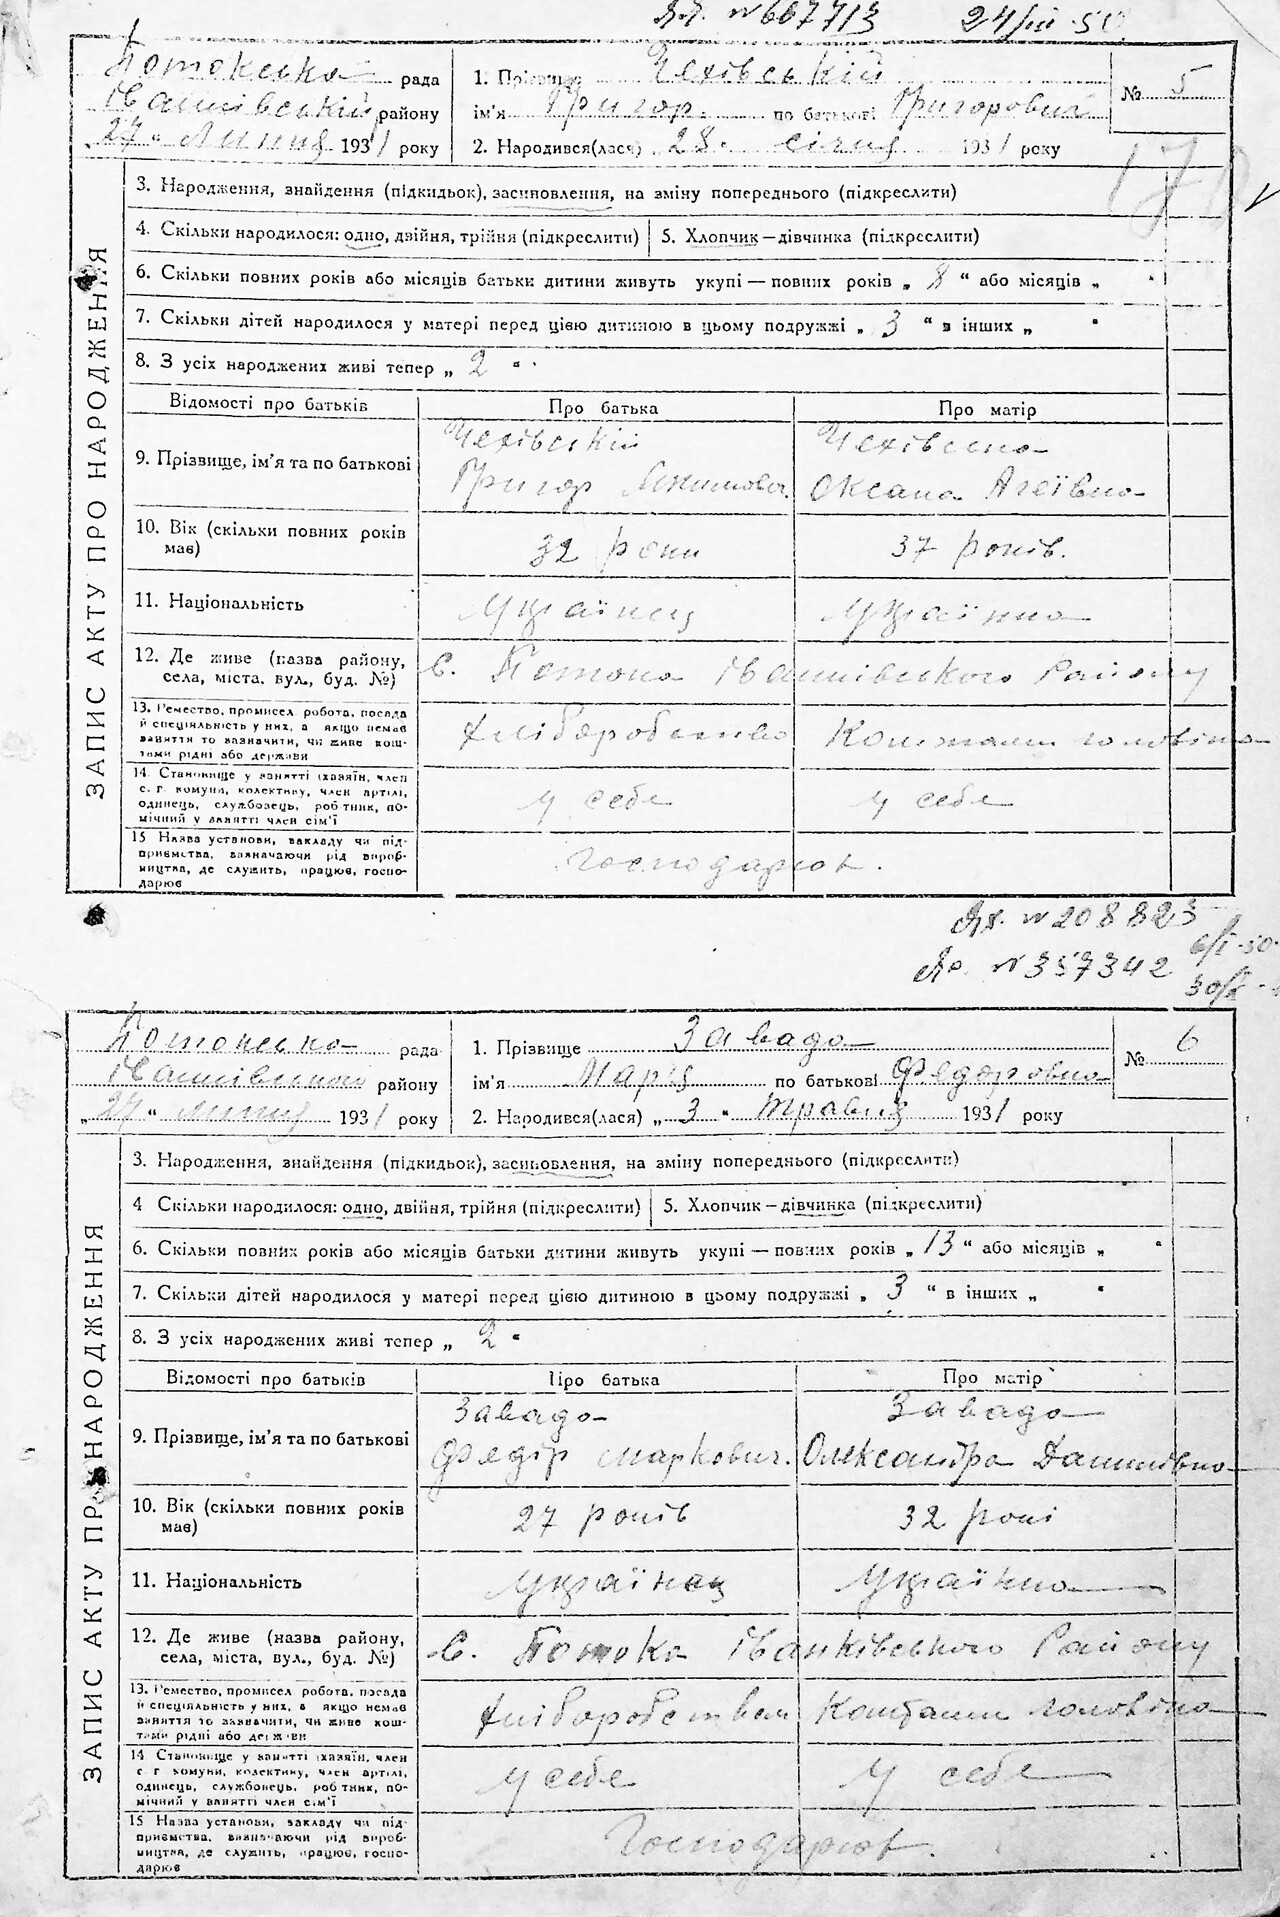 № 667713 24/III-50
Потокська рада
Іванківський району
27 " Липня 1931 року
1. Прізвище Чехівській
ім'я Григор. по батькові Григорович
2. Народився(лася) „ 28. січня 1931 року
№ 5
ЗАПИС АКТУ ПРО НАРОДЖЕННЯ
3. Народження, знайдення (підкидьок), засиновлення, на зміну попереднього (підкреслити)
4. Скільки народилося: одно, двійня, трійня (підкреслити) 5. Хлопчик—дівчинка (підкреслити)
6. Скільки повних років або місяців батьки дитини живуть укупі — повних років „ 8 “ або місяців „ “
7. Скільки дітей народилося у матері перед цією дитиною в цьому подружжі „ 3 “ в інших „ “
8. З усіх народжених живі тепер „ 2 “
Відомості про батьків Про батька Про матір
9. Прізвище, ім'я та по батькові
Чехівській
Григор Якимович.
Чехівська
Оксана Агеївна
10. Вік (скільки повних років має) 32 роки 37 років.
11. Національність Українец Українка
12. Де живе (назва району, села, міста, вул., буд. №) С. Потока Іванківського Району
13. Ремество, промисел робота, посада й спеціяльність у них, а якщо немає заняття то зазначити, чи живе коштами рідні або держави
Хліборобство Коштами чоловіка
14. Становище у занятті (хазяїн, член с. г. комуни, колективу, член артілі, одинець, службовець, робітник, помічний у занятті член сім'ї
у себе у себе
15 Назва установи, закладу чи підприємства, зазначаючи рід виробництва, де служить, працює, господарює
Господарюют.
№ 208823 6/I-50.
№ 357342 30/
Потокська рада
Іванківського району
„ 27 “ липня 1931 року
1. Прізвище Завада
ім'я Марія по батькові Федоровна
2. Народився(лася) „ 3 “ Травня 1931 року
№ 6
ЗАПИС АКТУ ПРО НАРОДЖЕННЯ
3. Народження, знайдення (підкидьок), засиновлення, на зміну попереднього (підкреслити)
4 Скільки народилося: одно, двійня, трійня (підкреслити) 5. Хлопчик—дівчинка (підкреслити)
6. Скільки повних років або місяців батьки дитини живуть укупі — повних років „ 13 “ або місяців „ “
7. Скільки дітей народилося у матері перед цією дитиною в цьому подружжі „ 3 “ в інших „ “
8. З усіх народжених живі тепер „ 2 “
Відомості про батьків Про батька Про матір
9. Прізвище, ім'я та по батькові
Завада
Федір Маркович.
Завада
Олександра Данилівна
10. Вік (скільки повних років має) 27 років 32 рокі
11. Національність Українец Українка
12. Де живе (назва району, села, міста, вул., буд. №) С. Потока Іванківського Району
13. Ремество, промисел робота, посада й спеціяльність у них, а якщо немає заняття то зазначити, чи живе коштами рідні або держави
Хліборобством Коштами чоловіка
14 Становище у занятті (хазяїн, член с. г. комуни, колективу, член артілі, одинець, службовець, робітник, помічний у занятті член сім'ї
у себе у себе
15 Назва установи, закладу чи підприємства, зазначаючи рід виробництва, де служить, працює, господарює
Господарюют.